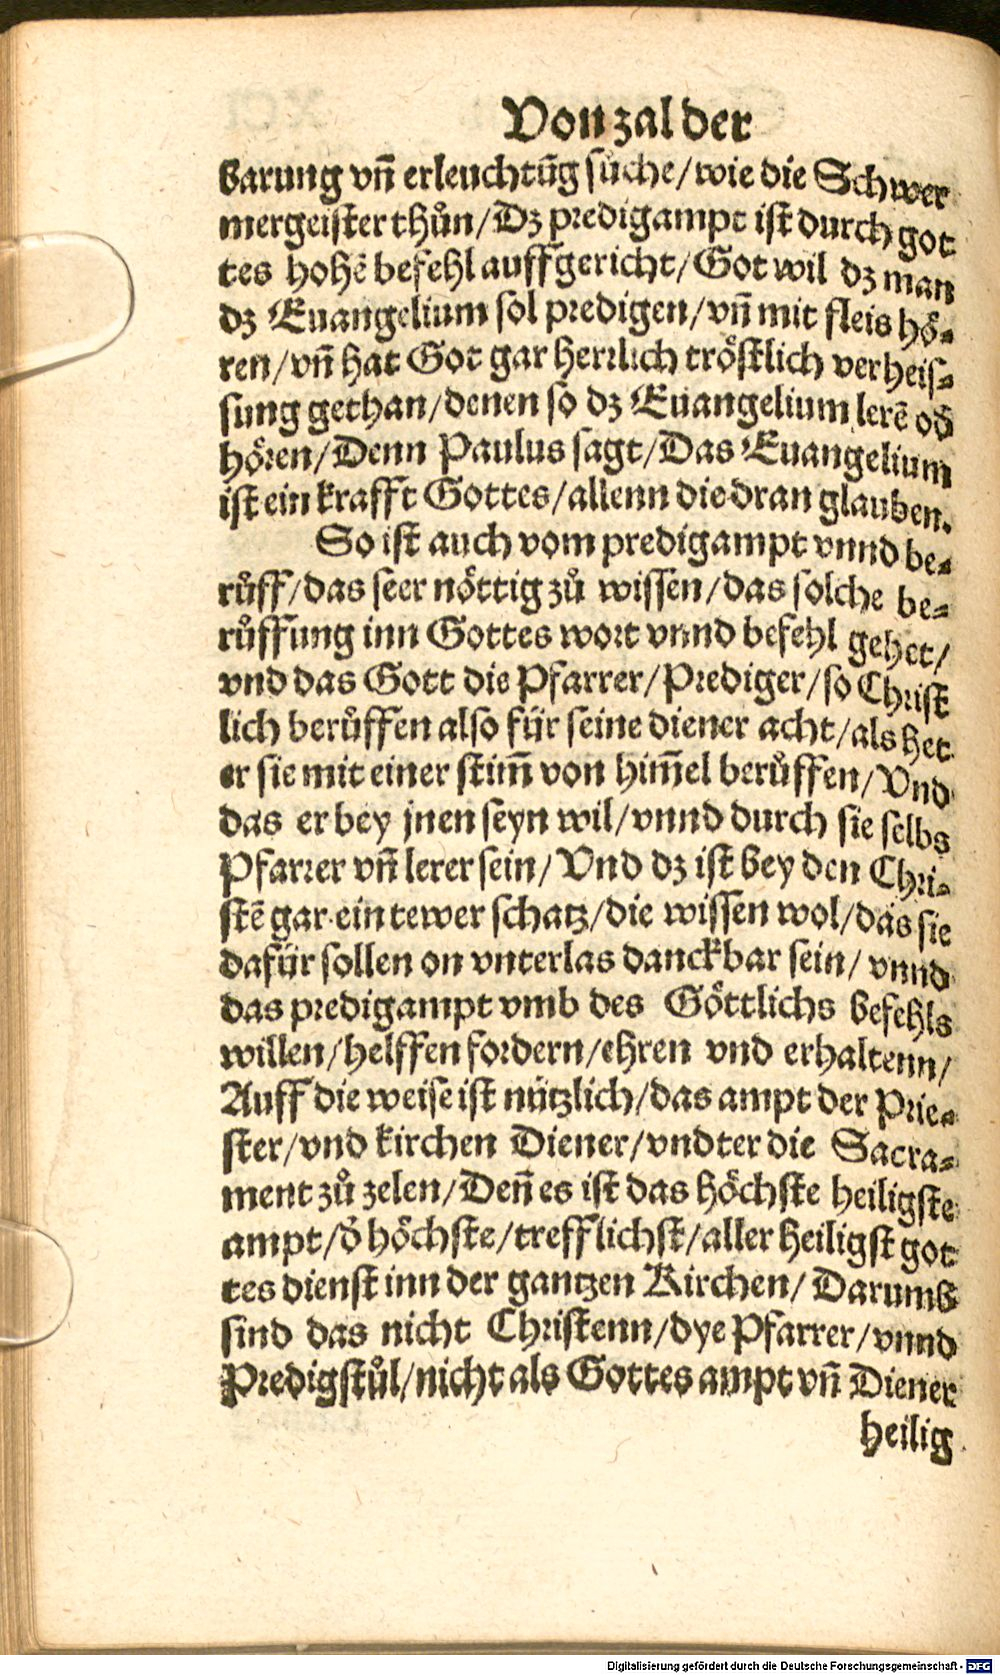 Von zal der
barung vñ erleuchtũg sůche/wie die Schwer
mergeister thůn/Dz predigampt ist durch got
tes hohẽ befehl auffgericht/Got wil dz man
dz Euangelium sol predigen/vñ mit fleis hö⸗
ren/vñ hat Got gar herrlich tröstlich verheis⸗
sung gethan/denen so dz Euangelium lerẽ oď
hören/Denn Paulus sagt/Das Euangelium
ist ein krafft Gottes/allenn die dran glauben.
So ist auch vom predigampt vnnd be⸗
růff/das seer nöttig zů wissen/das solche be⸗
růffung inn Gottes wort vnnd befehl gehet/
vnd das Gott die Pfarrer/Prediger/so Christ
lich berůffen also für seine diener acht/als het
er sie mit einer stim̃ von him̃el berůffen/Vnd
das er bey jnen seyn wil/vnnd durch sie selbs
Pfarrer vñ lerer sein/Vnd dz ist bey den Chri⸗
stẽ gar ein tewer schatz/die wissen wol/das sie
dafür sollen on vnterlas danckbar sein/vnnd
das predigampt vmb des Göttlichs befehls
willen/helffen fordern/ehren vnd erhaltenn/
Auff die weise ist nützlich/das ampt der Prie⸗
ster/vnd kirchen Diener/vndter die Sacra⸗
ment zů zelen/Deñ es ist das höchste heiligste
ampt/ď höchste/trefflichst/aller heiligst got
tes dienst inn der gantzen Kirchen/Darumb
sind das nicht Christenn/dye Pfarrer/vnnd
Predigstůl/nicht als Gottes ampt vñ Diener
heilig
Digitalisierung gefördert durch die Deutsche Forschungsgemeinschaft - DFG